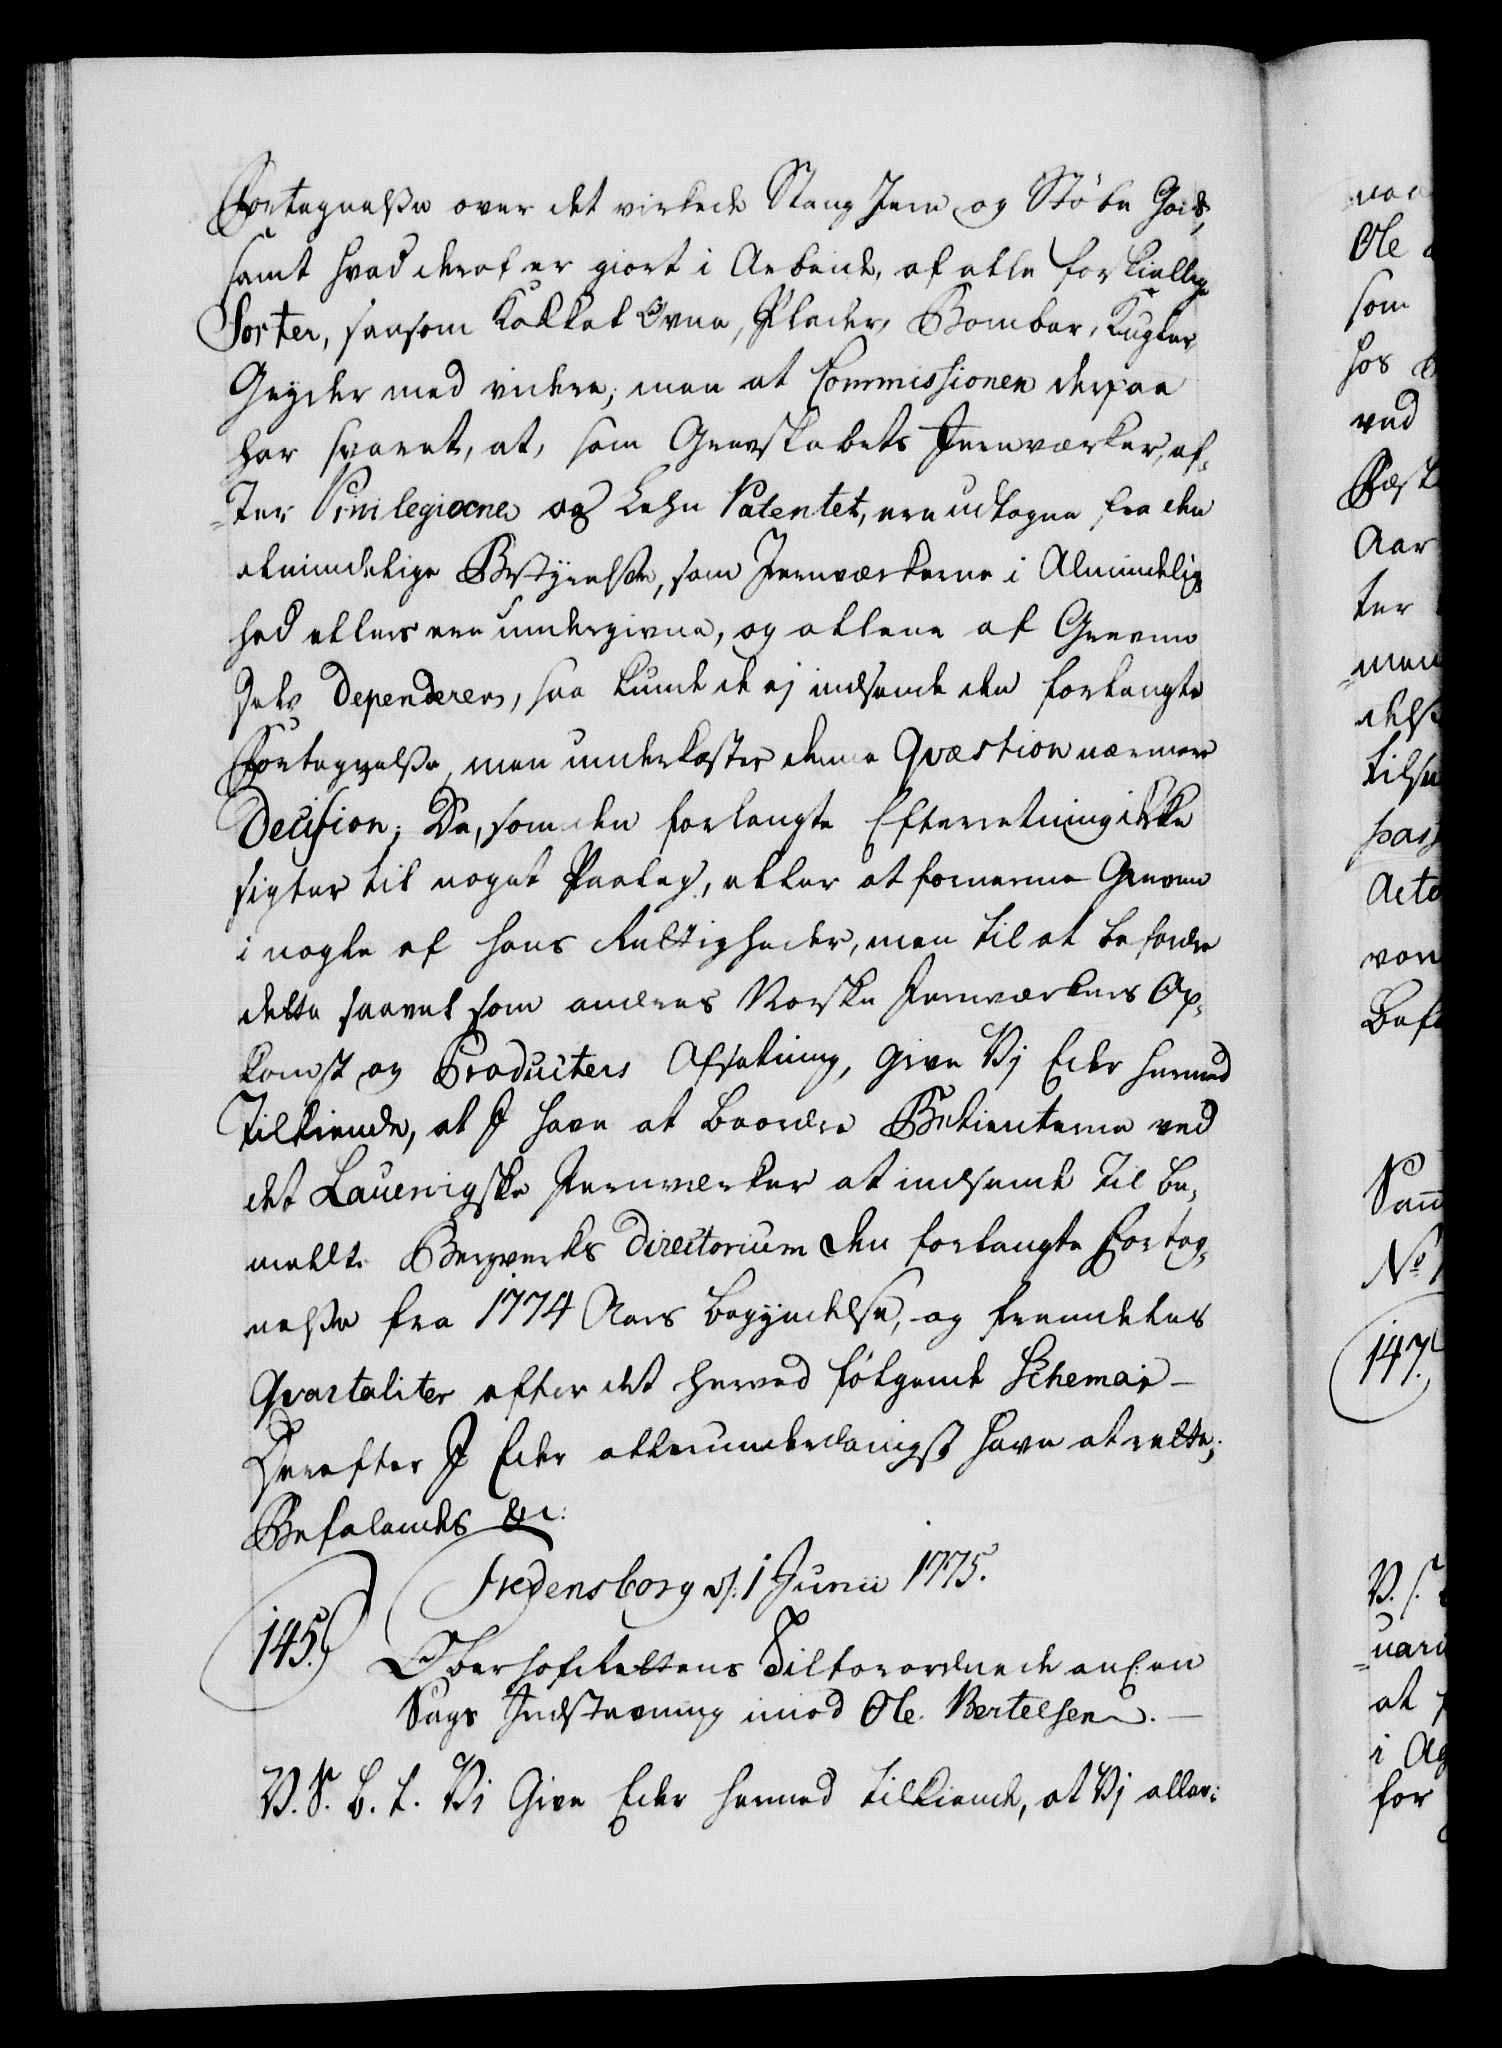 Fortegnelse over det virkede Stang Jern og Støbe Gods,
samt hvad deraf er giort i Arbeide, af alle forskiellige
Sorter, saasom Kakkel Ovne, Plader, Bomber, Kugler
Gryder med videre; men at Commissionen derpaa
har svaret, at, som Grevskabets Jernværker, ef-
-ter Privilegierne og Lehn Patentet, ere udtagne fra den
almindelige Bestyrelse, som Jernværkerne i Almindelig
hed ellers ere undergivne, og allene af Greven
Selv dependerer, saa kunde de ej indsende den forlangte
Fortegnelse, men underkaster denne Qvæstion nærmere
Decision; Da, som den forlangte Efterretning ikke
sigter til noget Paalæg, eller at fornærme Greven
i nogle af hans Rettigheder, men til at befordre
dette saavel som andres Norske Jernværkers Op-
komst og Producters Afsetning, Give Vj Eder hermed
tilkiende, at J have at beordre Betienterne ved
det Lauervigske Jernværker at indsende til be-
meldte Bergverks Directorium den forlangte Forteg-
nelse fra 1774 Aars Begyndelse, og fremdeles
Qvartaliter efter det herved følgende Schema; —
Derefter J Eder allerunderdanigst have at rette;
Befalendes &c:
Fredensborg d: 1 Junii 1775.
145.) Oberhofrettens Tilforordnede anl: en
Sags Indstævning imod Ole Bertelsen. —
V. S. B. t. Vj Give Eder hermed tilkiende, at Vj aller-
Ole
som
hos
ved
Aar
ter
men
No
147.
V. S.
at
i
for